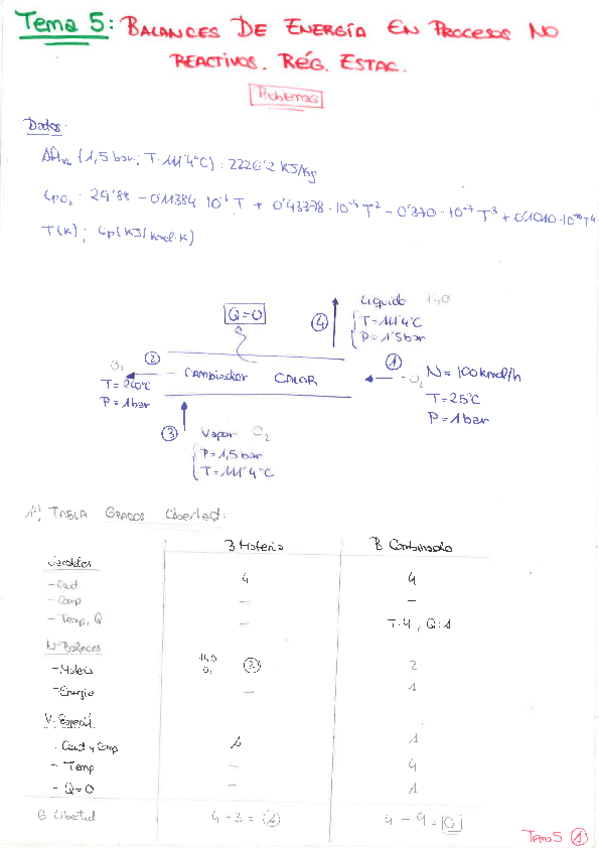 Tema 5: BALANCES DE ENERGÍA EN PROCESOS NO
REACTIVOS. RÉG. ESTAC.
Problemas
Datos:
ΔĤv (1,5 bar; T=111'4ºC) : 2226'2 KJ/Kg
CpO₂ = 29'88 - 0'11384·10⁻¹T + 0'43378·10⁻⁴T² - 0'370·10⁻⁷T³ + 0'1010·10⁻¹⁰T⁴
T(K); Cp(KJ/kmol·K)
Q=0
④
Líquido H₂O
T=111'4ºC
P=1'5bar
②
O₂
T=200ºC
P=1bar
Cambiador CALOR
①
O₂
N=100kmol/h
T=25ºC
P=1bar
③
Vapor O₂
P=1,5bar
T=111'4ºC
1º) TABLA GRADOS Libertad:
B Materia B Combinado
Variables
- Caud 4 4
- Comp - -
- Temp, Q - T:4, Q:1
Nº Balances
- Materia H₂O O₂ ② 2
- Energía - 1
V. Especif
- Caud y Comp 1 1
- Temp - 4
- Q=0 - 1
G Libertad 4-3=① 4-9=0
Tema 5 ①